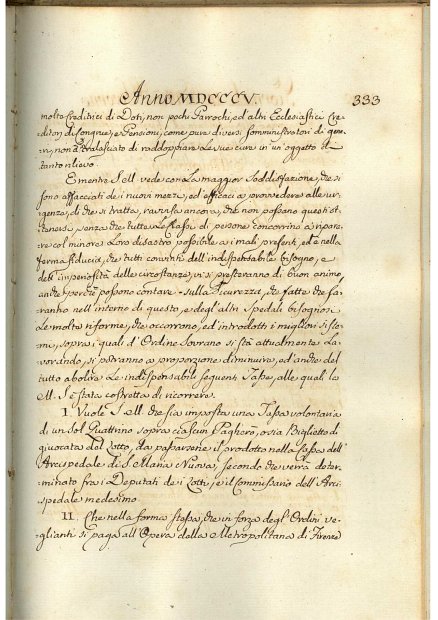 Anno MDCCCV. 333
molte creditrici di Doti, non pochi Parrochi, ed altri Ecclesiastici Cre-
ditori di Congrue, e Pensioni, come pure diversi somministratori di gene-
ri, non à tralasciato di raddoppiare le sue cure in un'oggetto di
tanto rilievo.
E mentre S. M. vede con la maggior soddisfazione, che si
sono affacciati dei nuovi mezzi, ed efficaci a provvedere alle ur-
genze, di che si tratta, ravvisa ancora, che non possano questi ot-
tenersi, senza che tutte le classi di persone concorrino a ripara-
re col minore loro disastro possibile ai mali presenti, ed è nella
ferma fiducia, che tutti convinti dell'indispensabile bisogno, e
dell'imperiosità delle circostanze, vi si presteranno di buon animo,
anche perchè possono contare sulla sicurezza, che fatte che sa-
ranno nell'interno di questo, e degl'altri Spedali bisognosi
le molte riforme, che occorrono, ed introdotti i migliori siste-
mi, sopra i quali d'Ordine Sovrano si stà attualmente la-
vorando, si potranno a proporzione diminuire, ed anche del
tutto abolire le indispensabili seguenti Tasse, alle quali la
M. S. è stata costretta di ricorrere.
I. Vuole S. M. che sia imposta una Tassa volontaria
di un sol Quattrino sopra ciascun Pagherò, o sia Biglietto di
giuocata del Lotto, da passarsene il prodotto nella Cassa dell'
Arcispedale di S. Maria Nuova, secondo che verrà deter-
minato fra i Deputati de i Lotti, e il Commissario dell'Arci-
spedale medesimo.
II. Che nella forma stessa, che in forza degl'Ordini ve-
glianti si paga all'Opera della Metropolitana di Firenze